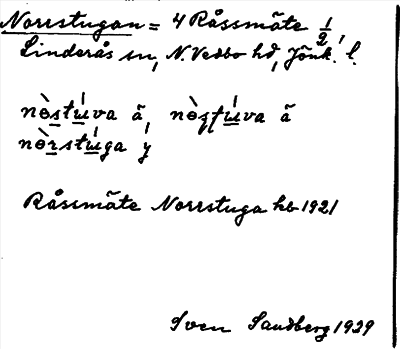 Norrstugan = 4 Råssmäte 1/2,
Linderås sn, N. Vedbo hd, Jönk. l.
nɵ̀stúva ä, nɵ̀ʂtúva ä
nɵ̀rstúga y
Råssmäte Norrstuga hb 1921
Sven Sandberg 1929